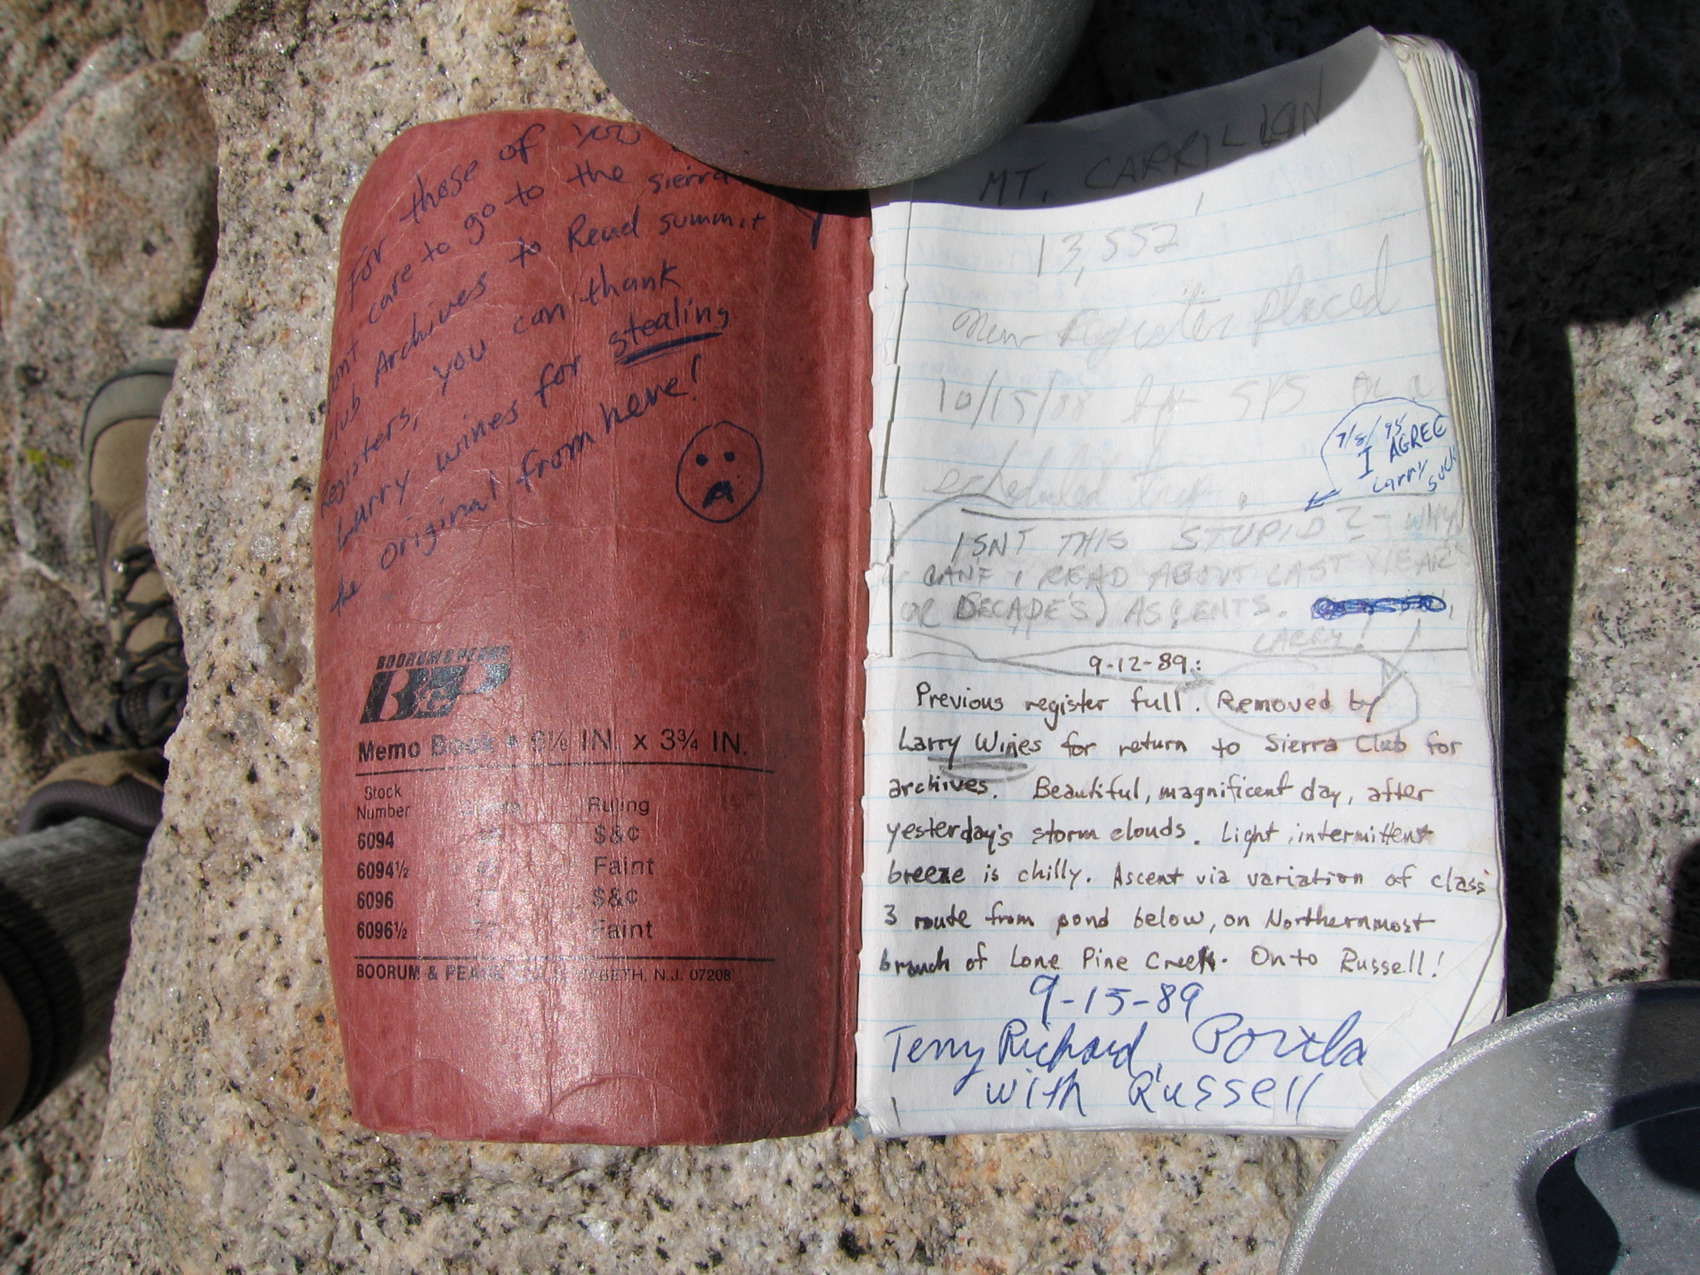 For those of you
care to go to the sierra
Club Archives to Read summit
Registers, you can thank
Larry wines for stealing
the original from here!
BOORUM & PEASE
B&P
Memo Book • 6⅛ IN. x 3¾ IN.
Stock
Number Ruling
6094 $&¢
6094½ Faint
6096 77 $&¢
6096½ 77 Faint
BOORUM & PEASE ELIZABETH, N.J. 07208
MT. CARRILLON
13,552'
New Register placed
10/15/88 by SPS on a
scheduled trip.
7/8/95
I AGREE
Larry
sucks
ISNT THIS STUPID? - WHY
CANT I READ ABOUT LAST YEARS
OR DECADE'S) ASCENTS.
LARRY!
9-12-89:
Previous register full. Removed by
Larry Wines for return to Sierra Club for
archives. Beautiful, magnificent day, after
yesterday's storm clouds. Light, intermittent
breeze is chilly. Ascent via variation of class
3 route from pond below, on Northernmost
branch of Lone Pine Creek. Onto Russell!
9-15-89
Terry Richard,
with Russell